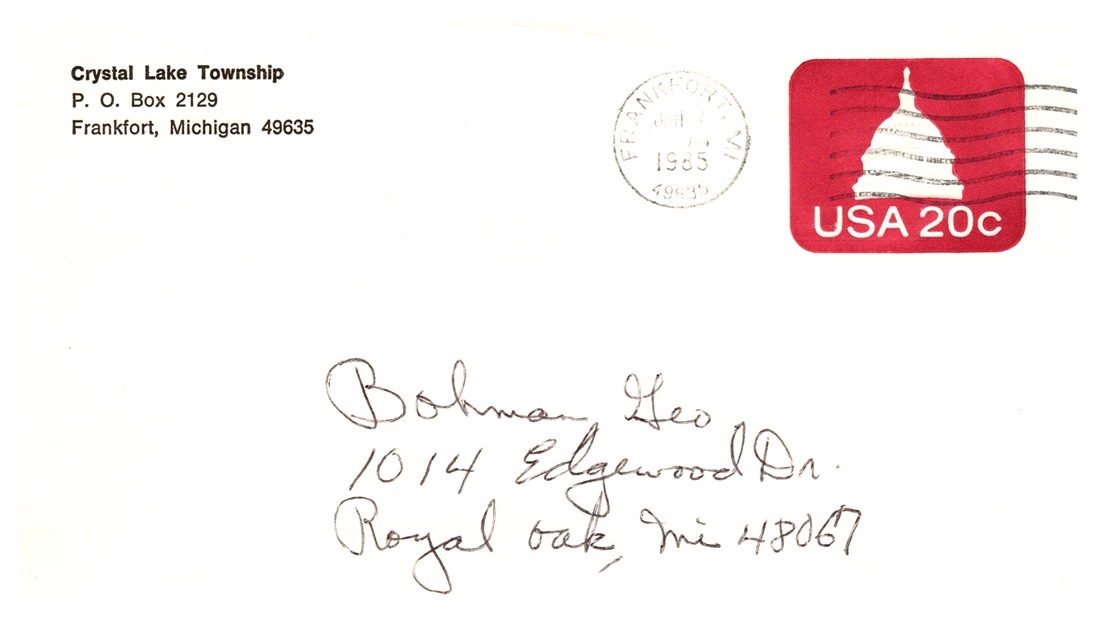 Crystal Lake Township
P. O. Box 2129
Frankfort, Michigan 49635
FRANKFORT, MI
1985
49635
USA 20c
Bohman Geo
1014 Edgewood Dr.
Royal Oak, Mi 48067